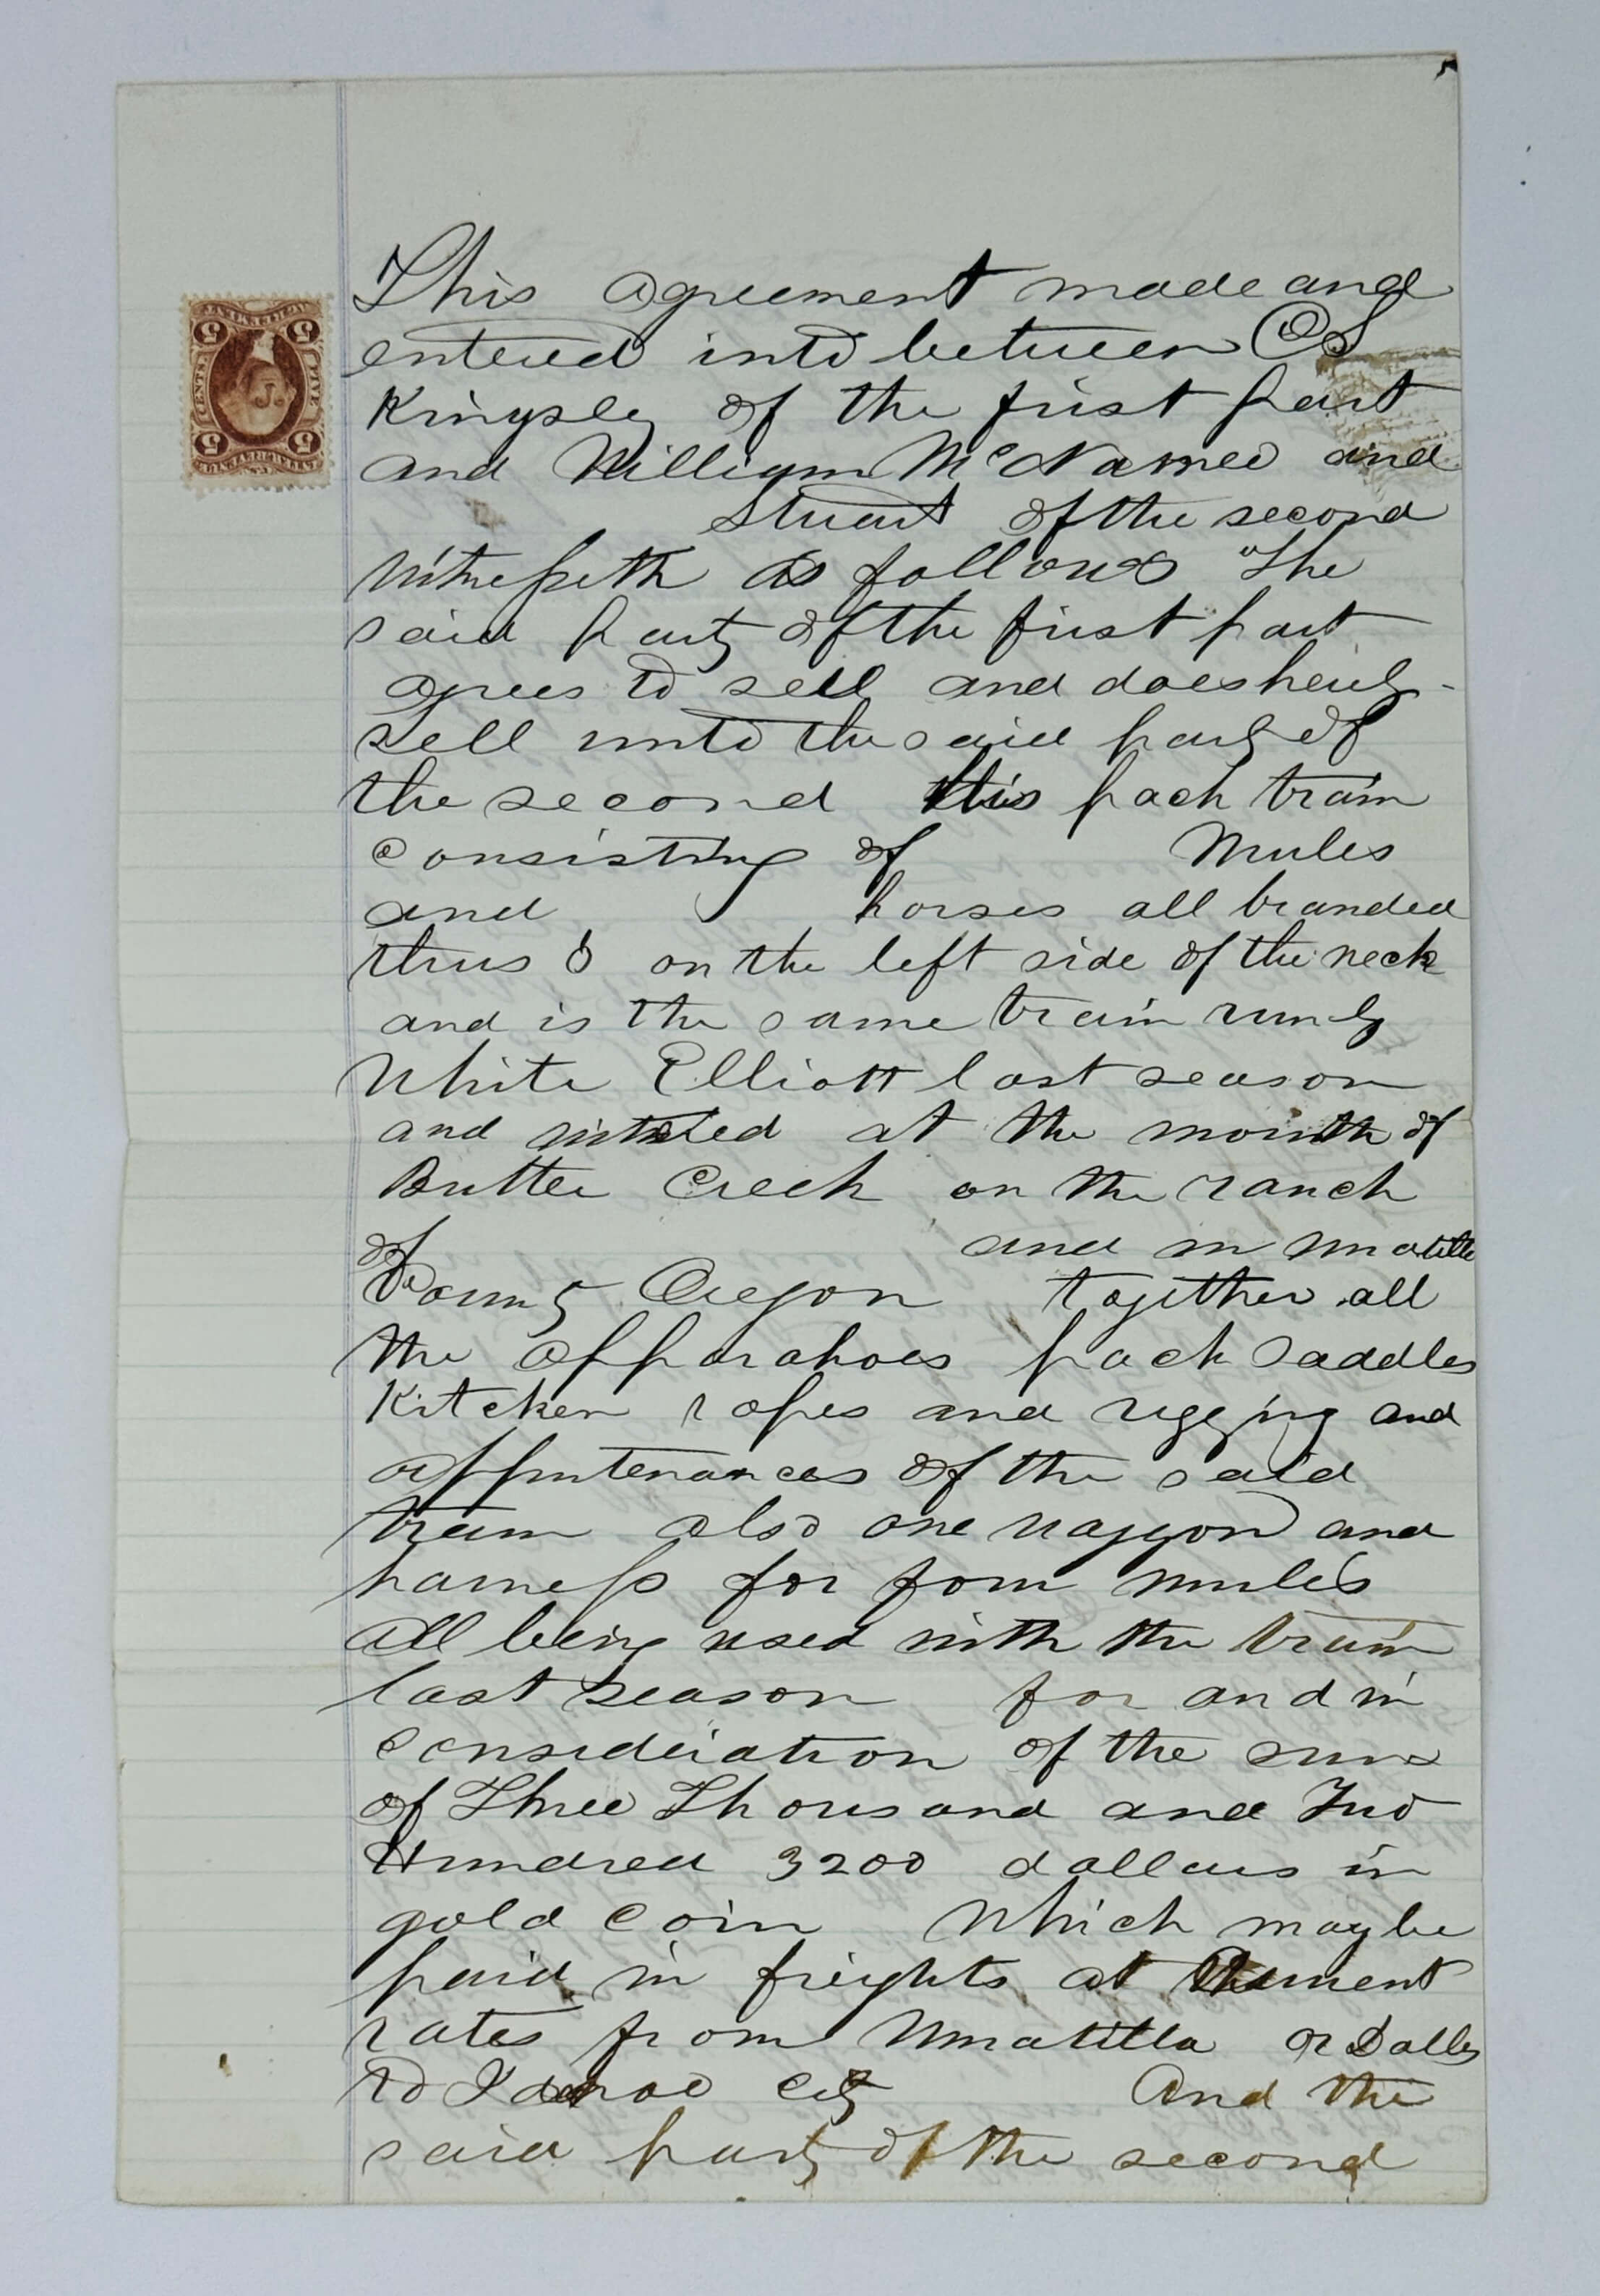 This agreement made and
entered into between CS
Kingsley of the first part
and William McNamee and
Stuart of the second
Witnesseth as follows The
said party of the first part
agrees to sell and does hereby
sell unto the said party of
the second this pack train
consisting of Mules
and horses all branded
thus on the left side of the neck
and is the same train run by
White Elliott last season
and wintered at the mouth of
Butter Creek on the ranch
of and in Umatilla
County Oregon together all
the apparahoes pack saddles
Kitchen ropes and rigging and
appurtenances of the said
train also one waggon and
harness for four mules
all being used with the train
last season for and in
consideration of the sum
of Three Thousand and Two
Hundred 3200 dollars in
gold coin Which may be
paid in freights at
rates from Umatilla or Dalles
to Idahoe City And the
said party of the second
5 5
FIVE CENTS
5 5